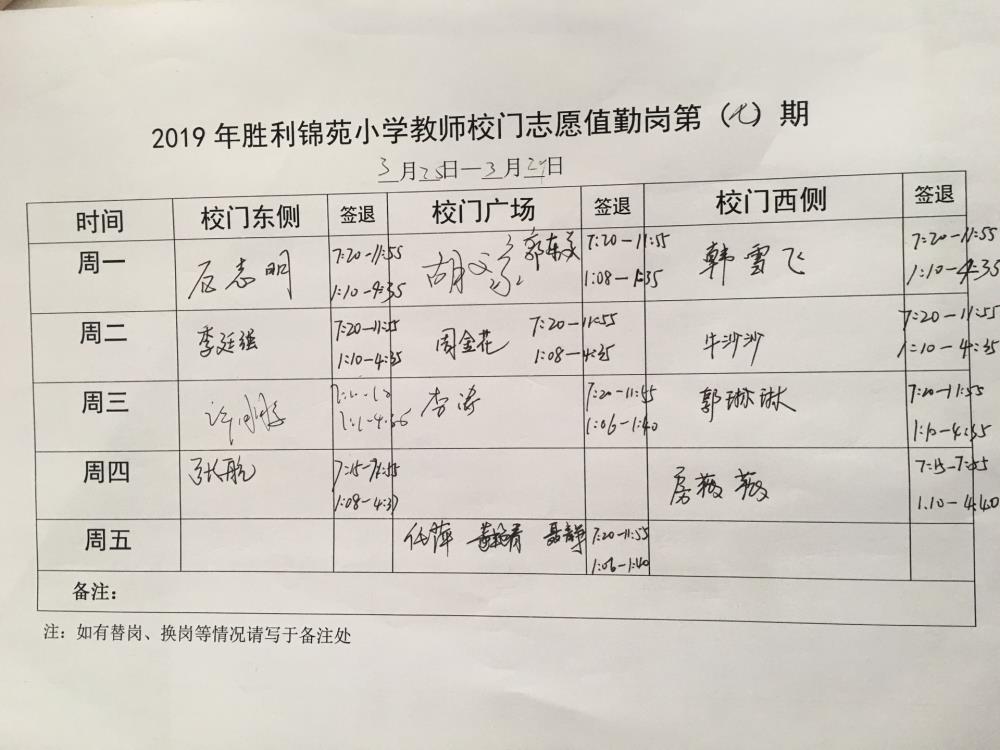 2019年胜利锦苑小学教师校门志愿值勤岗第（七）期
3月25日—3月29日
时间 校门东侧 签退 校门广场 签退 校门西侧 签退
周一 志明 7:20-11:55 胡 郭 7:20-11:55 韩雪飞 7:20-11:55
1:10-4:35 1:08-1:35 1:10-4:35
周二 李廷强 7:20-11:55 周金花 7:20-11:55 牛沙沙 7:20-11:55
1:10-4:35 1:08-4:35 1:10-4:35
周三 李涛 7:20-11:55 郭琳琳 7:20-11:55
1:06-1:40 1:10-4:35
周四 张航 房薇薇 7:15-7:55
1:08-4:37 1.10-4:40
周五 任萍 聂静 7:20-11:55
1:06-1:40
备注：
注：如有替岗、换岗等情况请写于备注处